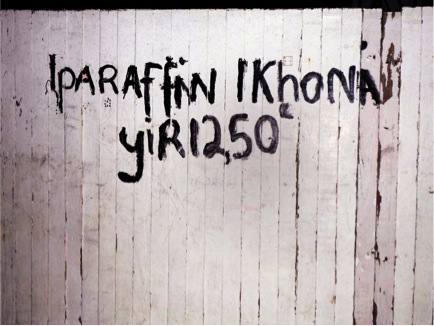 IPARAffiN IKhONA
yiR12,50c